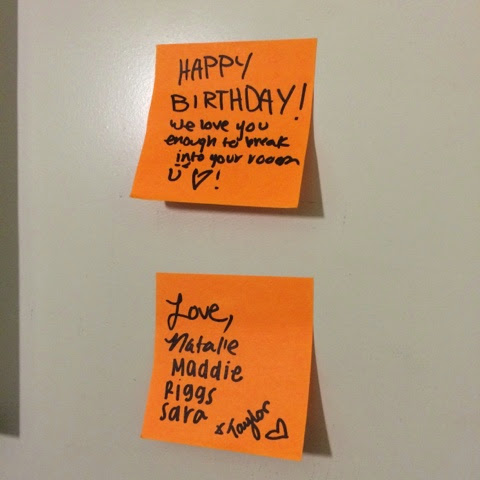 HAPPY
BIRTHDAY!
we love you
enough to break
into your room
!
Love,
Natalie
Maddie
Riggs
Sara
& Taylor